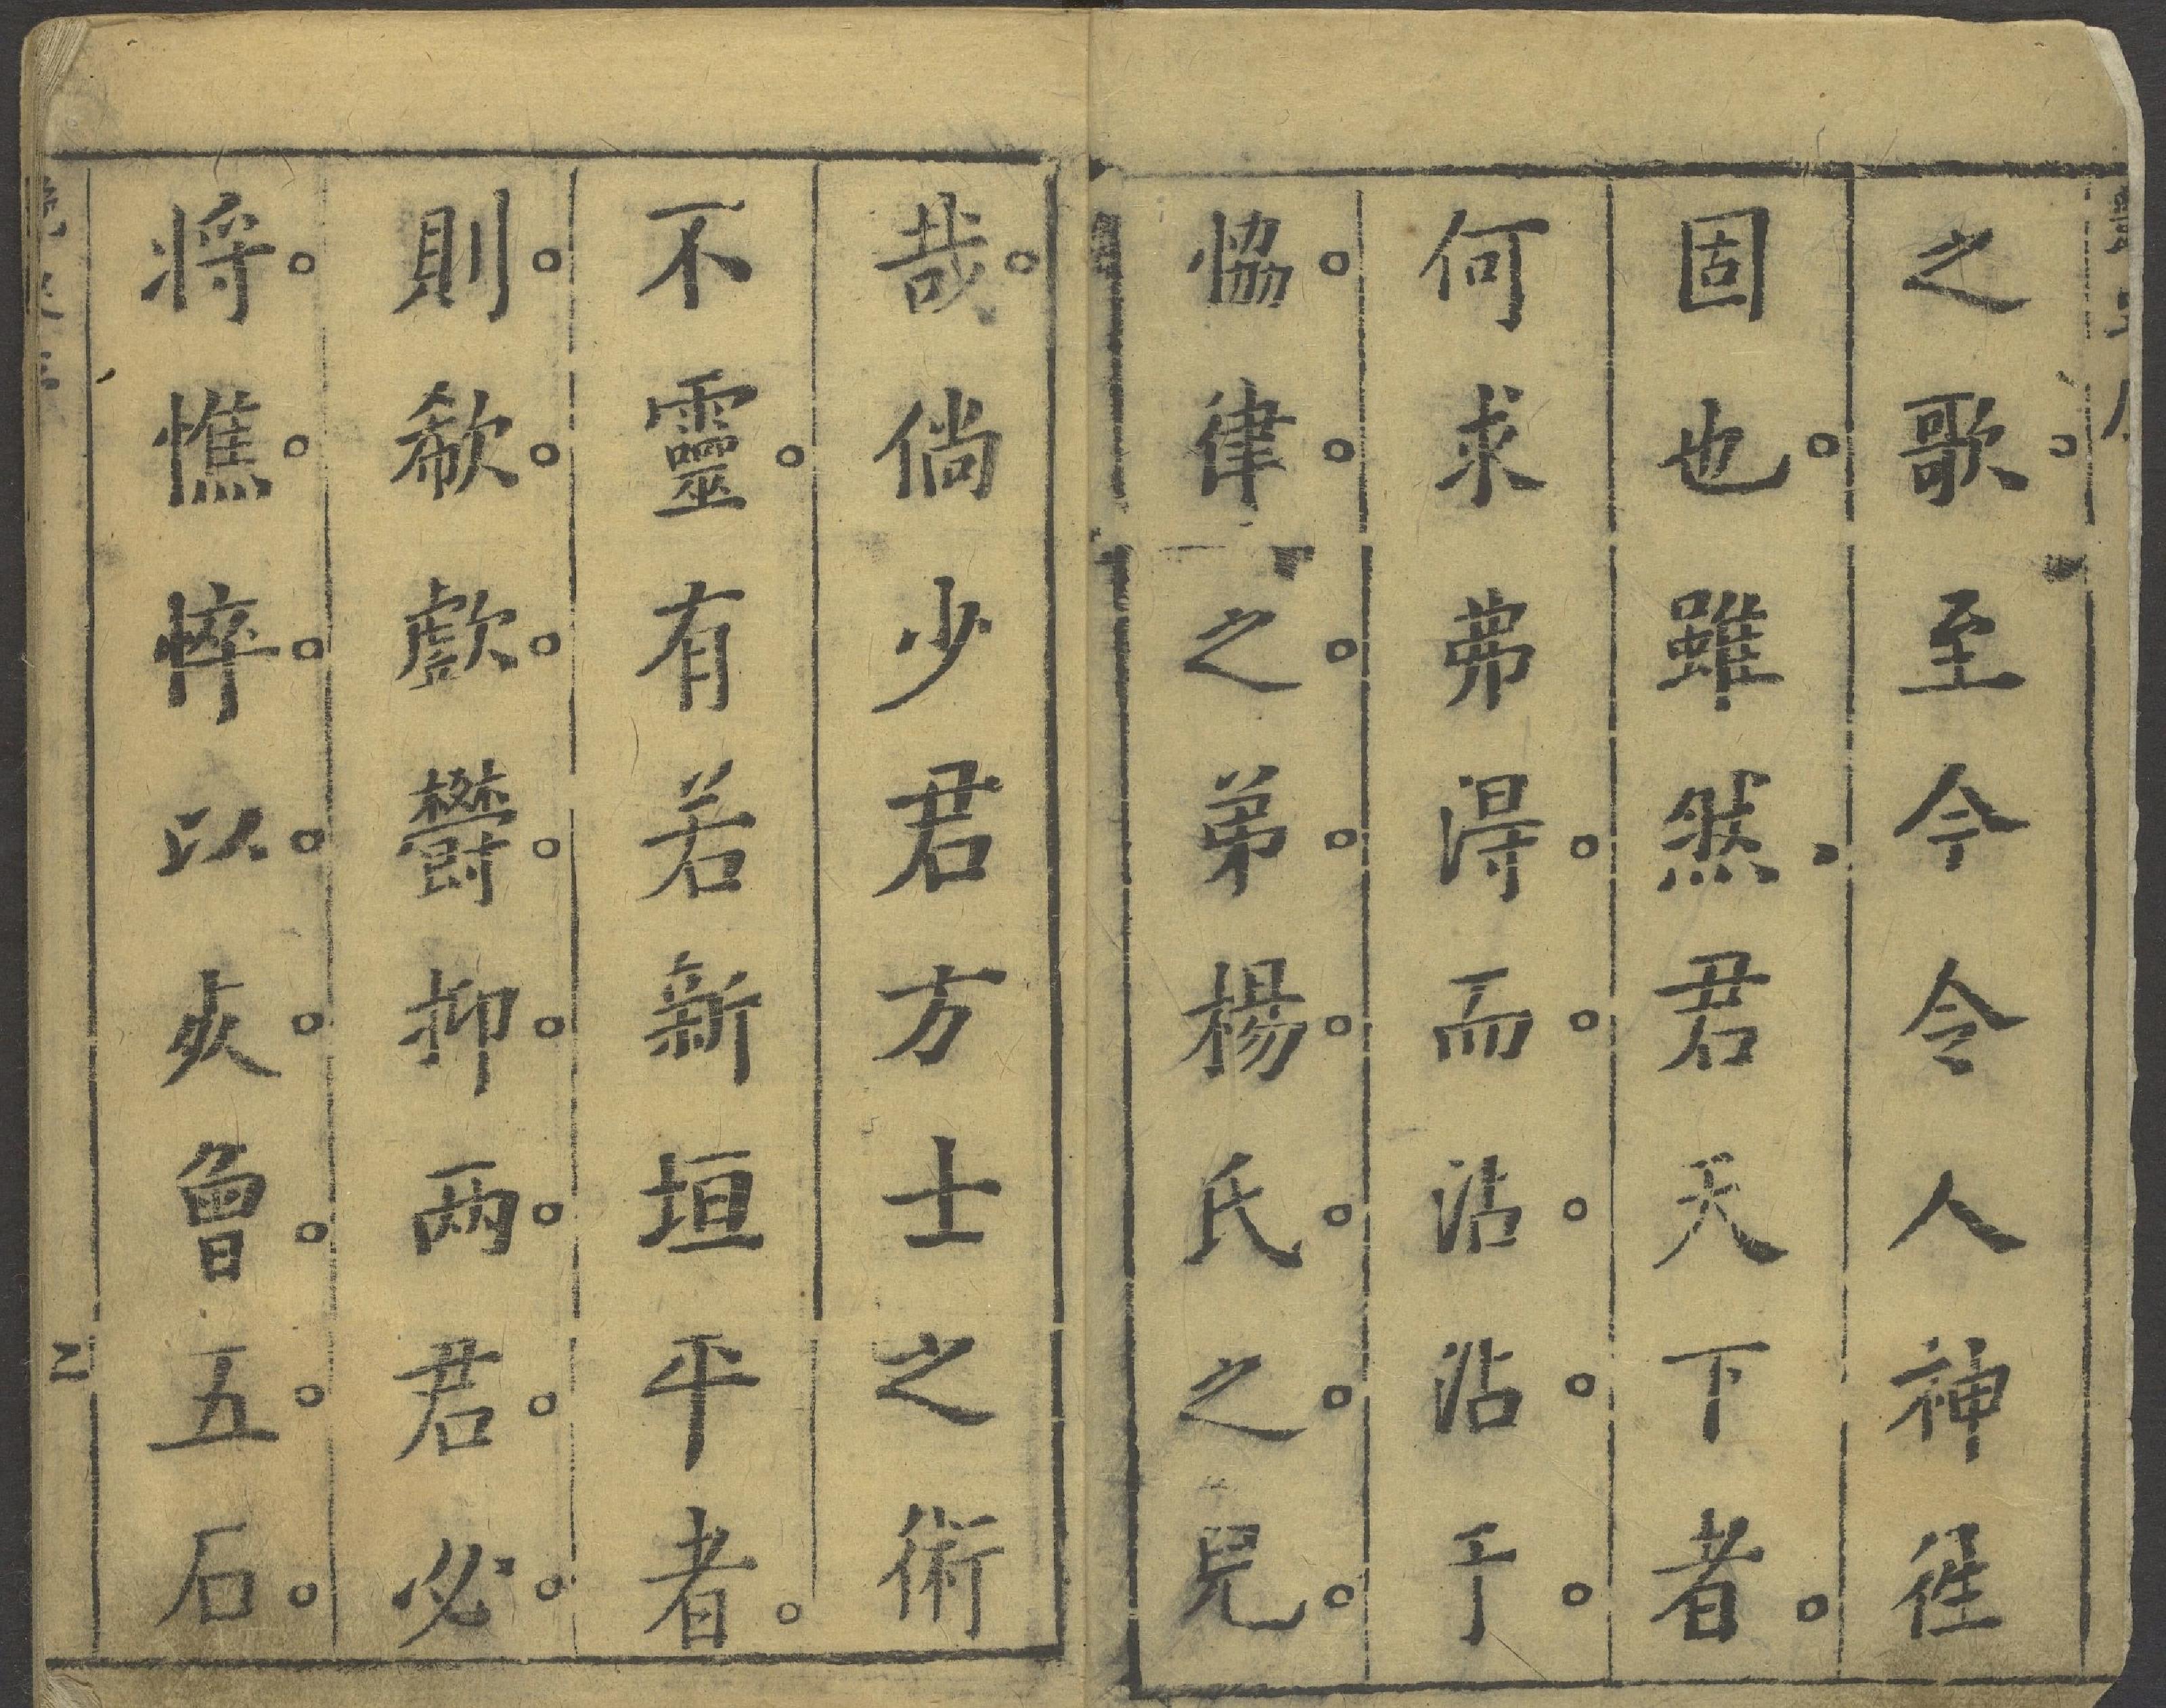 之歌至今令人神徃
固也雖然君天下者
何求弗淂而沾沾于
恊律之弟楊氏之兒
哉倘少君方士之術
不靈有若新垣平者
則欷歔欝抑兩君必
將憔悴以死曾五石
二